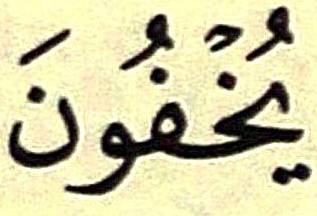 يُخْفُونَ